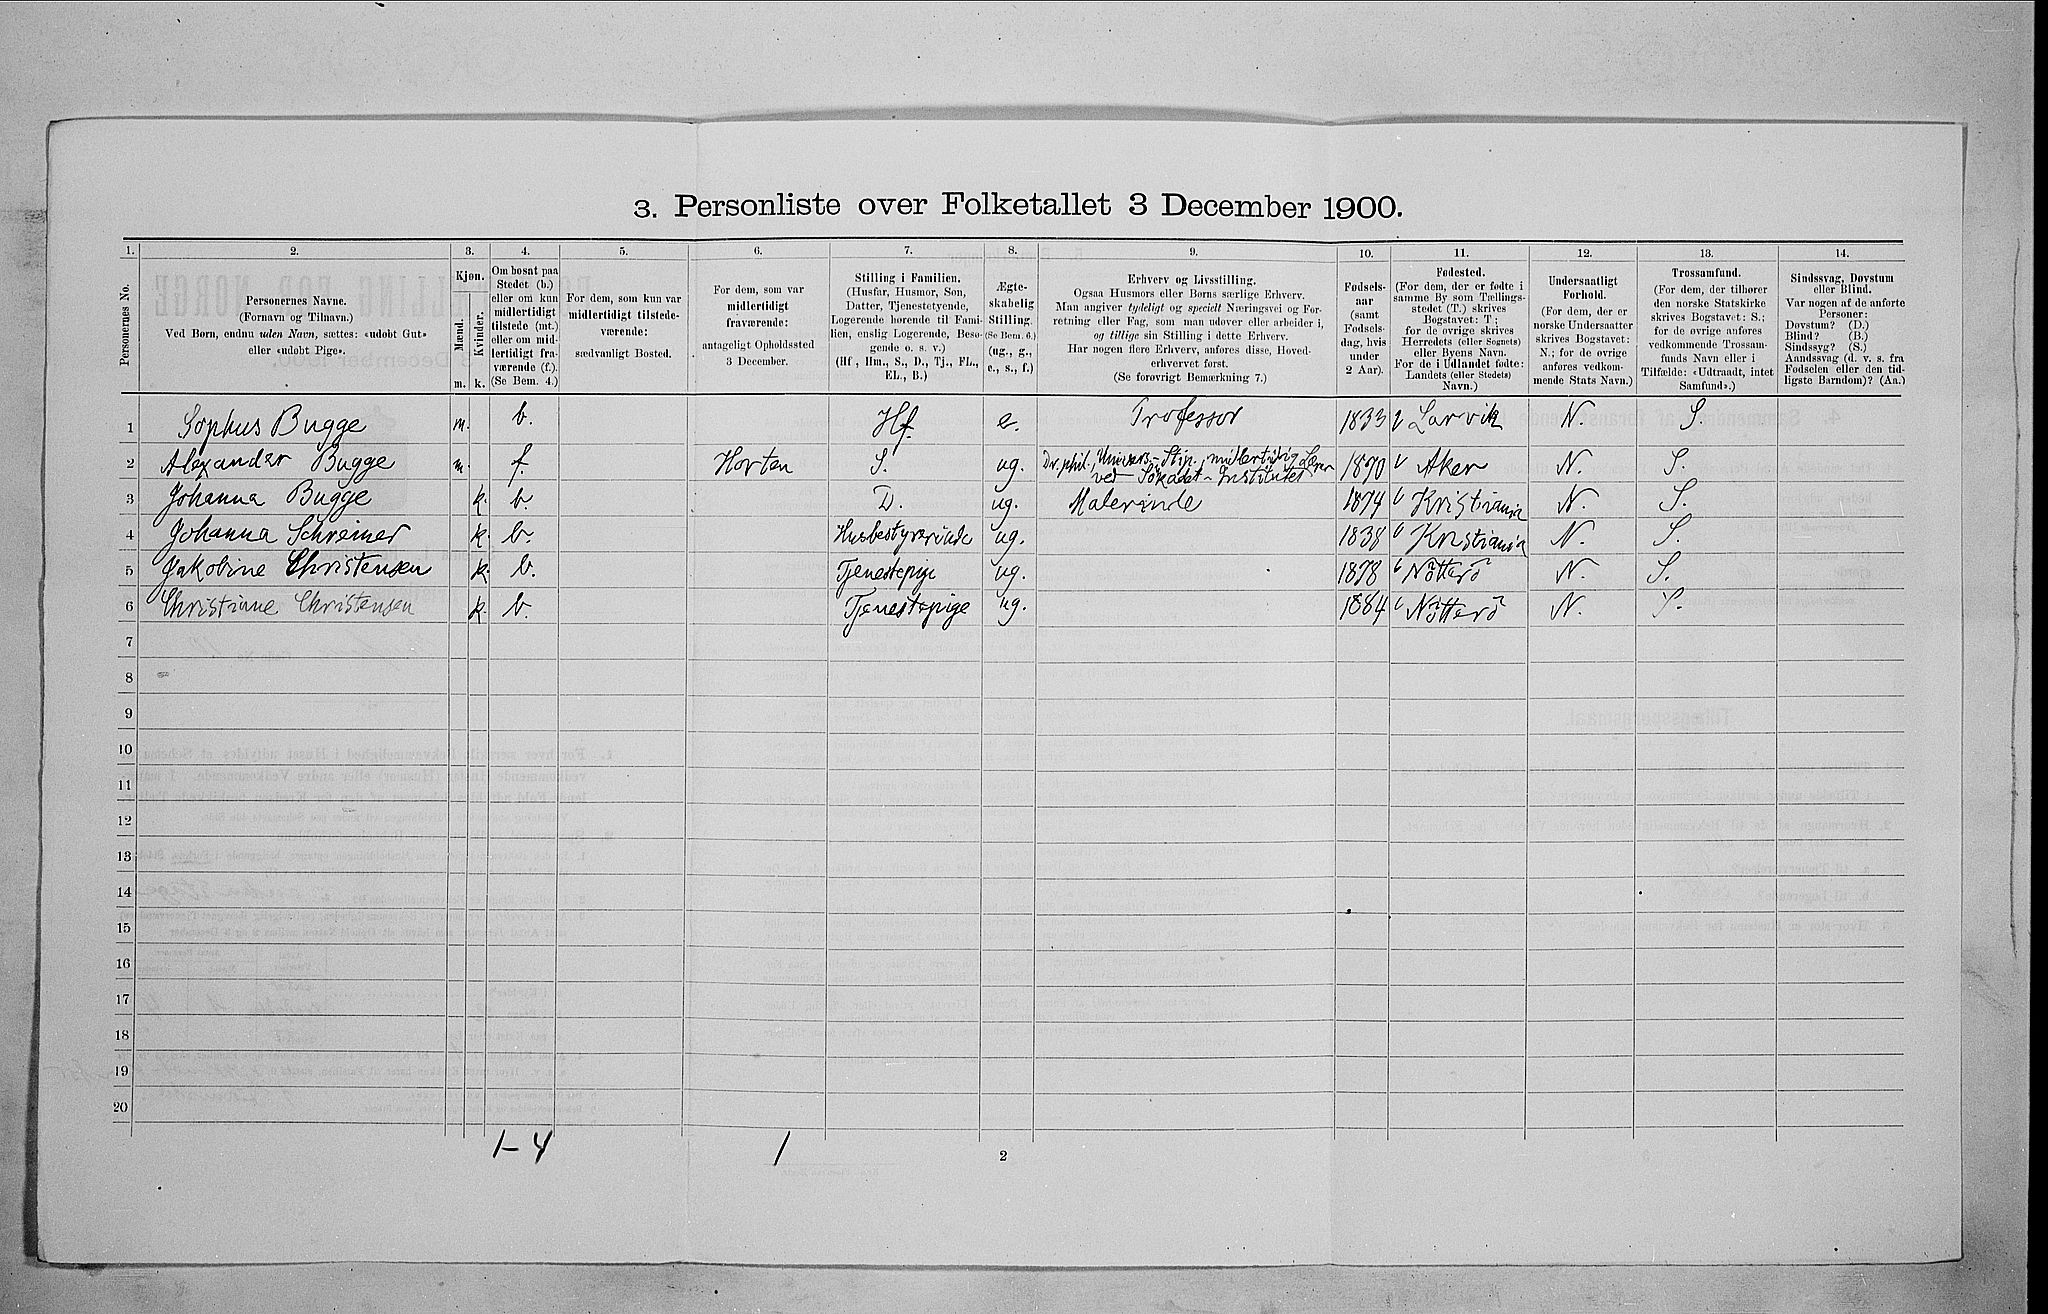 3. Personliste over Folketallet 3 December 1900.
1. 2. 3. 4. 5. 6. 7. 8. 9. 10. 11. 12. 13. 14.
Personernes No.
Personernes Navne.
(Fornavn og Tilnavn.)
Ved Børn, endnu uden Navn, sættes: «udøbt Gut»
eller «udøbt Pige».
Kjøn.
Mænd.
Kvinder.
m. k.
Om bosat paa
Stedet (b.)
eller om kun
midlertidigt
tilstede (mt.)
eller om mid-
lertidigt fra-
værende (f.).
(Se Bem. 4.)
For dem, som kun var
midlertidigt tilstede-
værende:
sædvanligt Bosted.
For dem, som var
midlertidigt
fraværende:
antageligt Opholdssted
3 December.
Stilling i Familien.
(Husfar, Husmor, Søn,
Datter, Tjenestetyende,
Logerende hørende til Fami-
lien, enslig Logerende, Besø-
gende o. s. v.)
(Hf, Hm., S., D., Tj., FL.,
EL., B.)
Ægte-
skabelig
Stilling.
(Se Bem. 6.)
(ug., g.,
e., s., f.)
Erhverv og Livsstilling.
Ogsaa Husmors eller Børns særlige Erhverv.
Man angiver tydeligt og specielt Næringsvei og For-
retning eller Fag, som man udøver eller arbeider i,
og tillige sin Stilling i dette Erhverv.
Har nogen flere Erhverv, anføres disse, Hoved-
erhvervet først.
(Se forøvrigt Bemærkning 7.)
Fødsels-
aar
(samt
Fødsels-
dag, hvis
under
2 Aar).
Fødested.
(For dem, der er fødte i
samme By som Tællings-
stedet (T.) skrives
Bogstavet: T;
for de øvrige skrives
Herredets (eller Sognets)
eller Byens Navn.
For de i Udlandet fødte:
Landets (eller Stedets)
Navn.)
Undersaatligt
Forhold.
(For dem, der er
norske Undersaatter
skrives Bogstavet:
N.; for de øvrige
anføres vedkom-
mende Stats Navn.)
Trossamfund.
(For dem, der tilhører
den norske Statskirke
skrives Bogstavet: S.;
for de øvrige anføres
vedkommende Trossam-
funds Navn eller i
Tilfælde: «Udtraadt, intet
Samfund».)
Sindssvag, Døvstum
eller Blind.
Var nogen af de anførte
Personer:
Døvstum? (D.)
Blind? (B.)
Sindssyg? (S.)
Aandssvag (d. v. s. fra
Fødselen eller den tid-
ligste Barndom)? (Aa.)
1 Sophus Bugge m. b. Hf. e. Professor 1833 Larvik N. S.
2 Alexander Bugge m. f. Horten S. ug. Dr. phil., Univers.-Stip., midlertidig Lærer
ved Sökadet-Institutet 1870 Aker N. S.
3 Johanna Bugge k. b. D. ug. Malerinde 1874 Kristiania N. S.
4 Johanna Schreiner k. b. Husbestyrerinde ug. 1838 Kristiania N. S.
5 Jakobine Christensen k. b. Tjenestepige ug. 1878 Nötterö N. S.
6 Christiane Christensen k. b. Tjenestepige ug. 1884 Nötterö N. S.
7
8
9
10
11
12
13
14
15
16
17
18
19
20
1-4 1 2